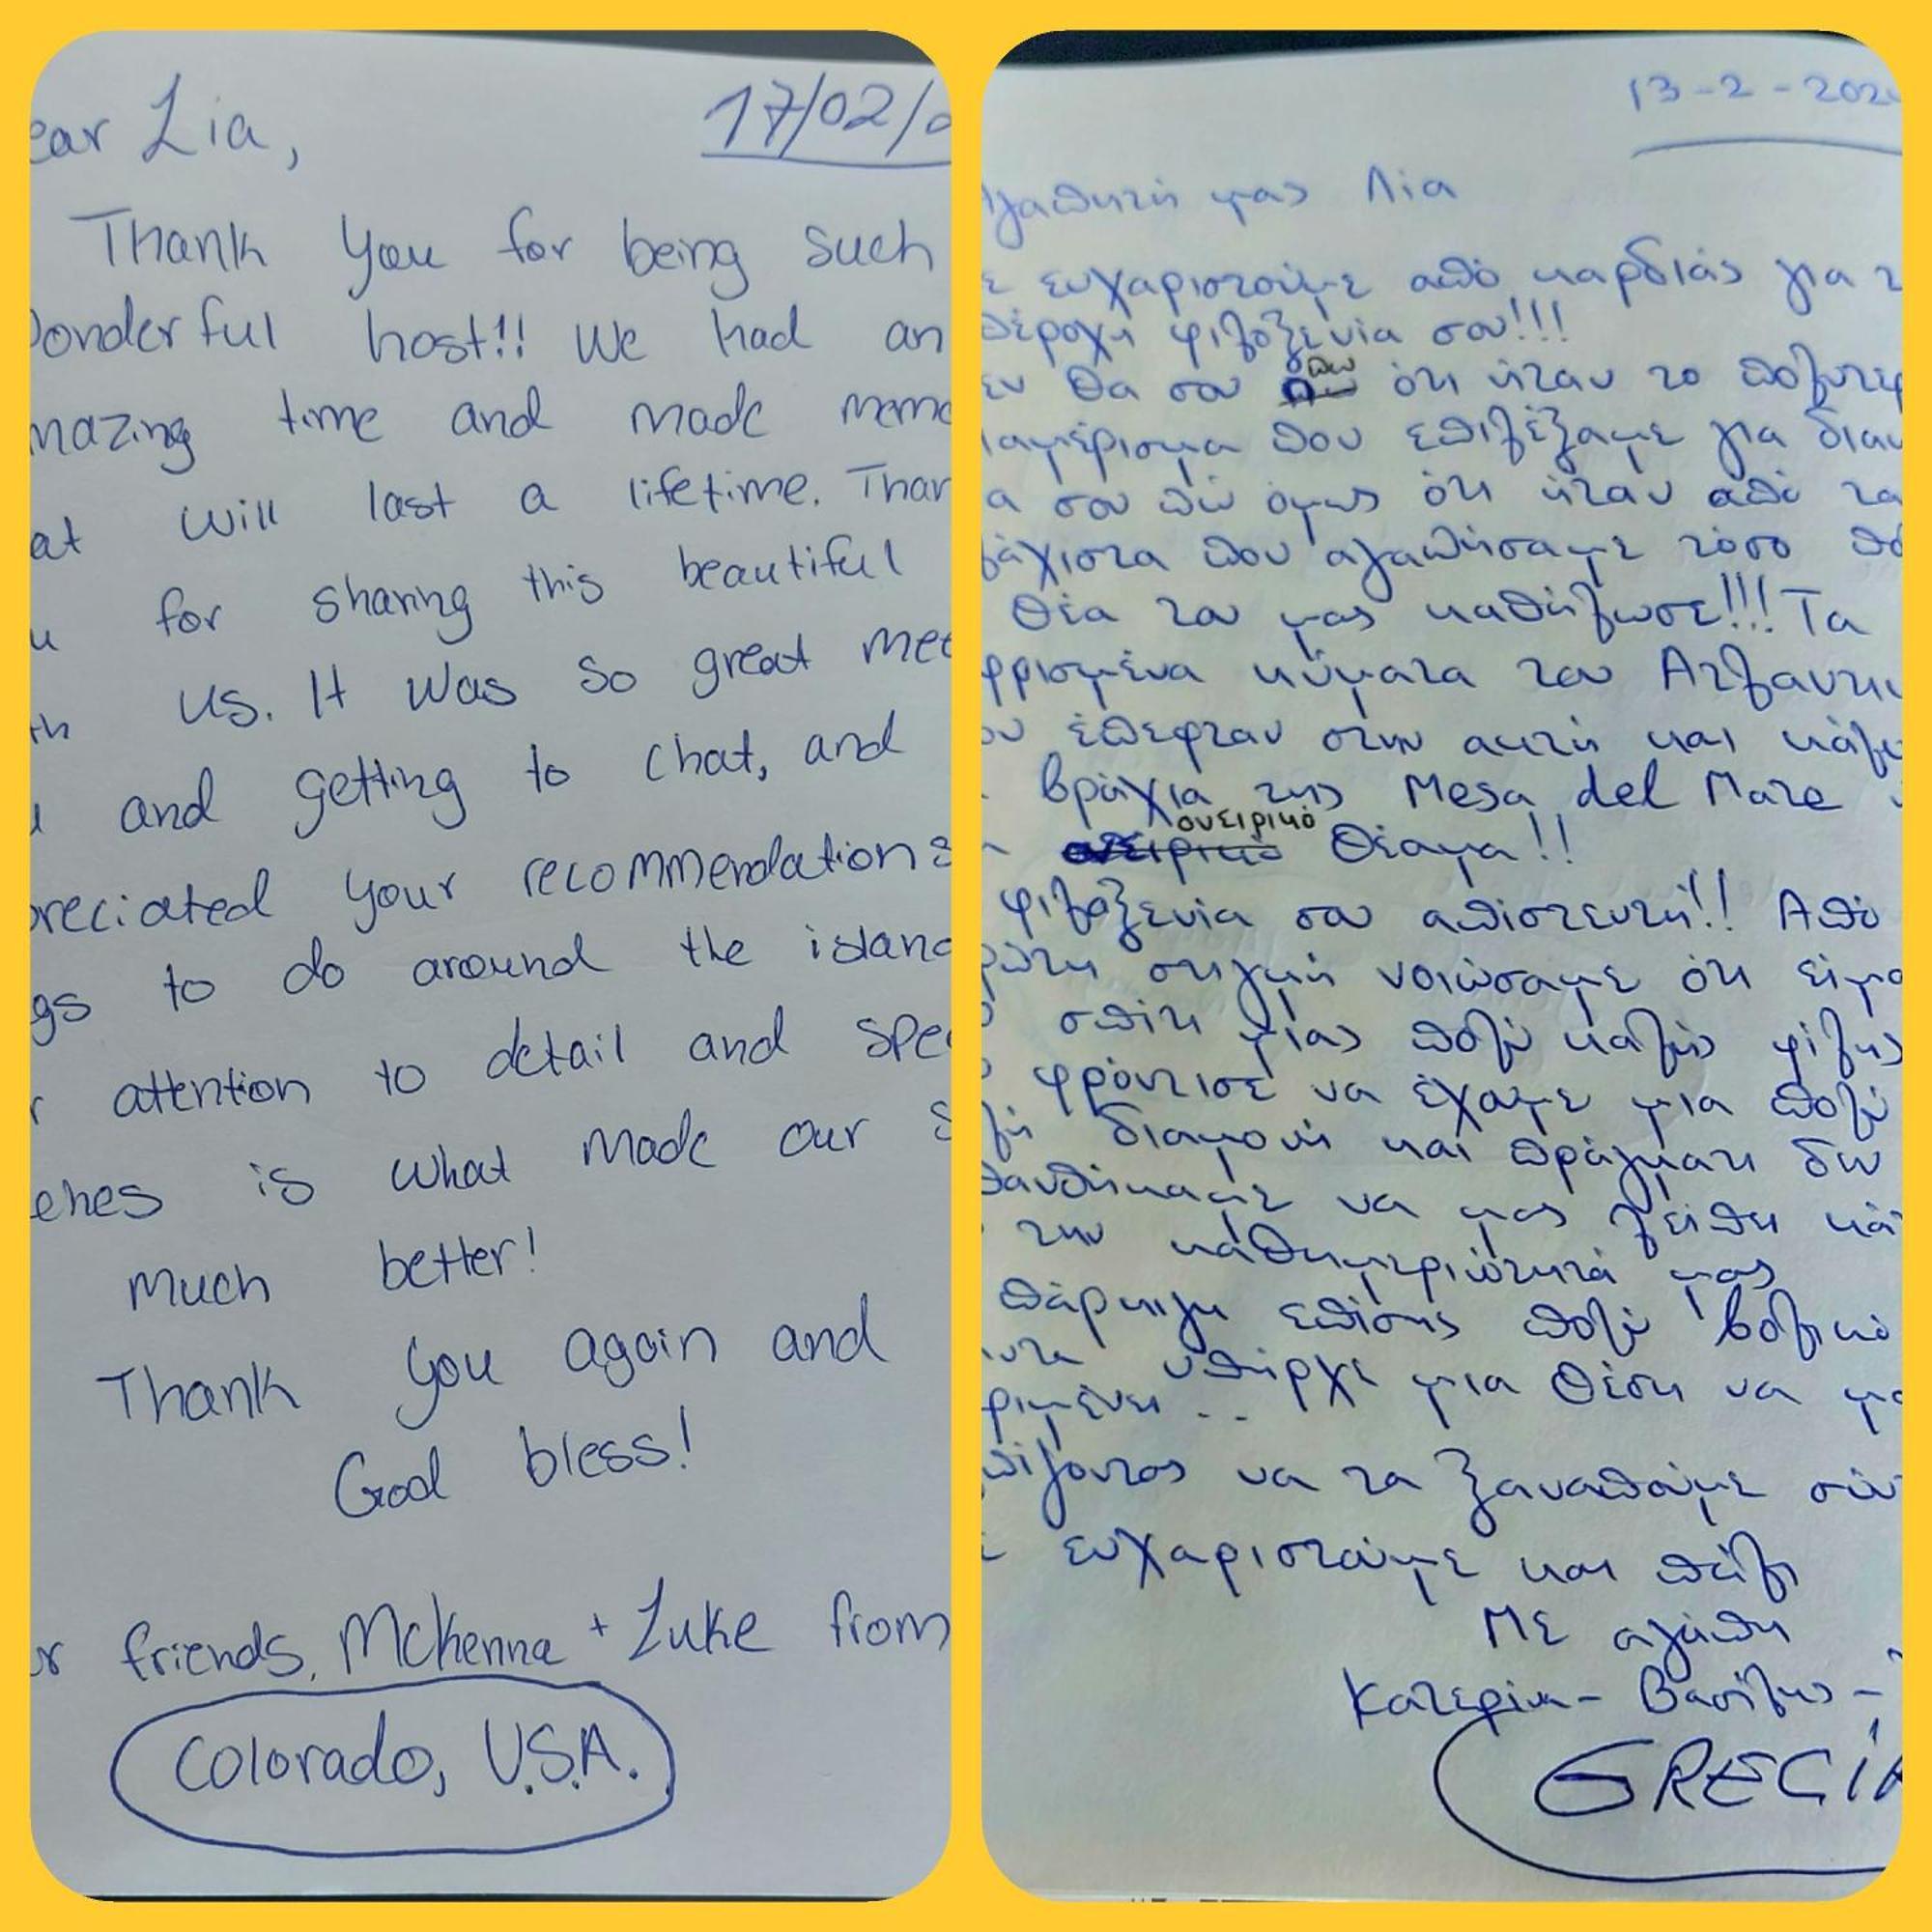 ear Lia,
17/02/2
Thank you for being such
onderful host!! We had an
mazing time and made memo
at will last a lifetime. Than
u for sharing this beautiful
th us. It was so great mee
u and getting to chat, and
preciated your recommendations
gs to do around the island
r attention to detail and spec
ches is what made our s
much better!
Thank you again and
God bless!
ur friends, McKenna + Luke from
Colorado, U.S.A.
13-2-202
γαπητή μας Λία
ε ευχαριστούμε από καρδιάς για τ
πέροχη φιλοξενία σου!!!
εν θα σου πω ότι ήταν το πολυτε
ιαμέρισμα που επιλέξαμε για διαμ
α σου πω όμως ότι ήταν από τα
λάχιστα που αγαπήσαμε τόσο πο
θέα του μας καθήλωσε!!! Τα
φρισμένα κύματα του Ατλαντικ
ου έπεφταν στην ακτή και κάλυ
βράχια της Mesa del Mare
ονειρικό θέαμα!!
φιλοξενία σου απίστευτη!! Από
ρώτη στιγμή νοιώσαμε ότι είμα
σπίτι μιας πολύ καλής φίλης
φρόντισε να έχουμε μια πολύ
λή διαμονή και πράγματι δεν
θανθήκαμε να μας λείπει κά
την καθημερινότητά μας
πάρκιγκ επίσης πολύ βολικό
άντα υπήρχε μια θέση να μα
ριμένει..
πίζοντας να τα ξαναπούμε σύν
ε ευχαριστούμε και πάλι
Με αγάπη
Κατερίνα - Βασίλης -
GRECIA